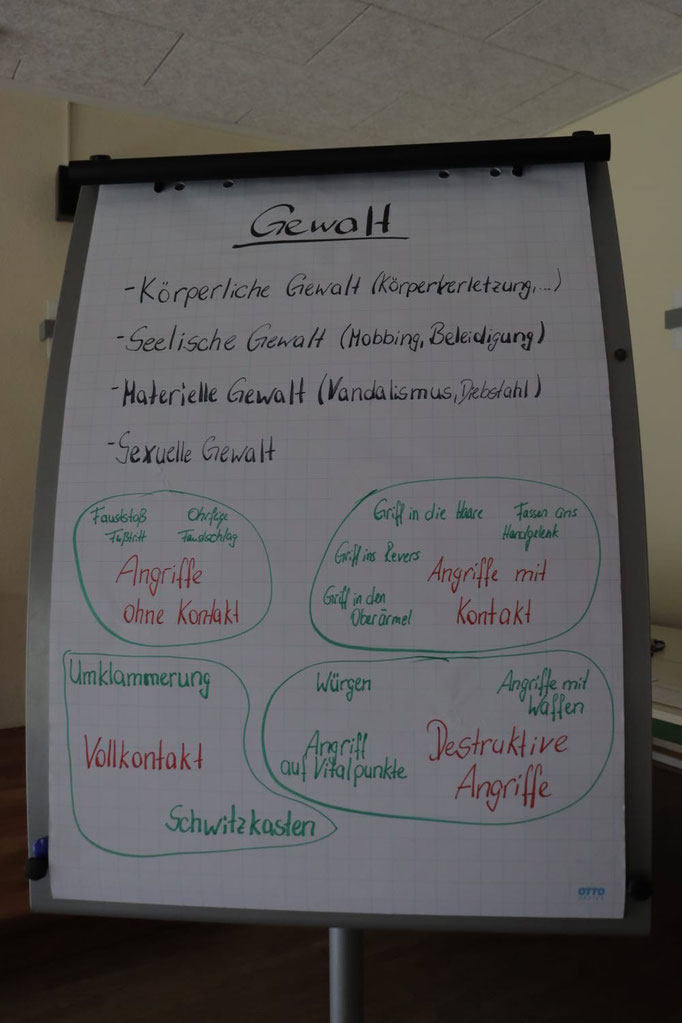 Gewalt
-Körperliche Gewalt (Körperverletzung,...)
-Seelische Gewalt (Mobbing, Beleidigung)
-Materielle Gewalt (Vandalismus, Diebstahl)
-Sexuelle Gewalt
Fauststoß Ohrfeige
Fußtritt Faustschlag
Angriffe
ohne Kontakt
Griff in die Haare
Fassen ans
Handgelenk
Griff ins Revers
Griff in den
Oberärmel
Angriffe mit
Kontakt
Umklammerung
Vollkontakt
Schwitzkasten
Würgen
Angriffe mit
Waffen
Angriff
auf Vitalpunkte
Destruktive
Angriffe
OTTO